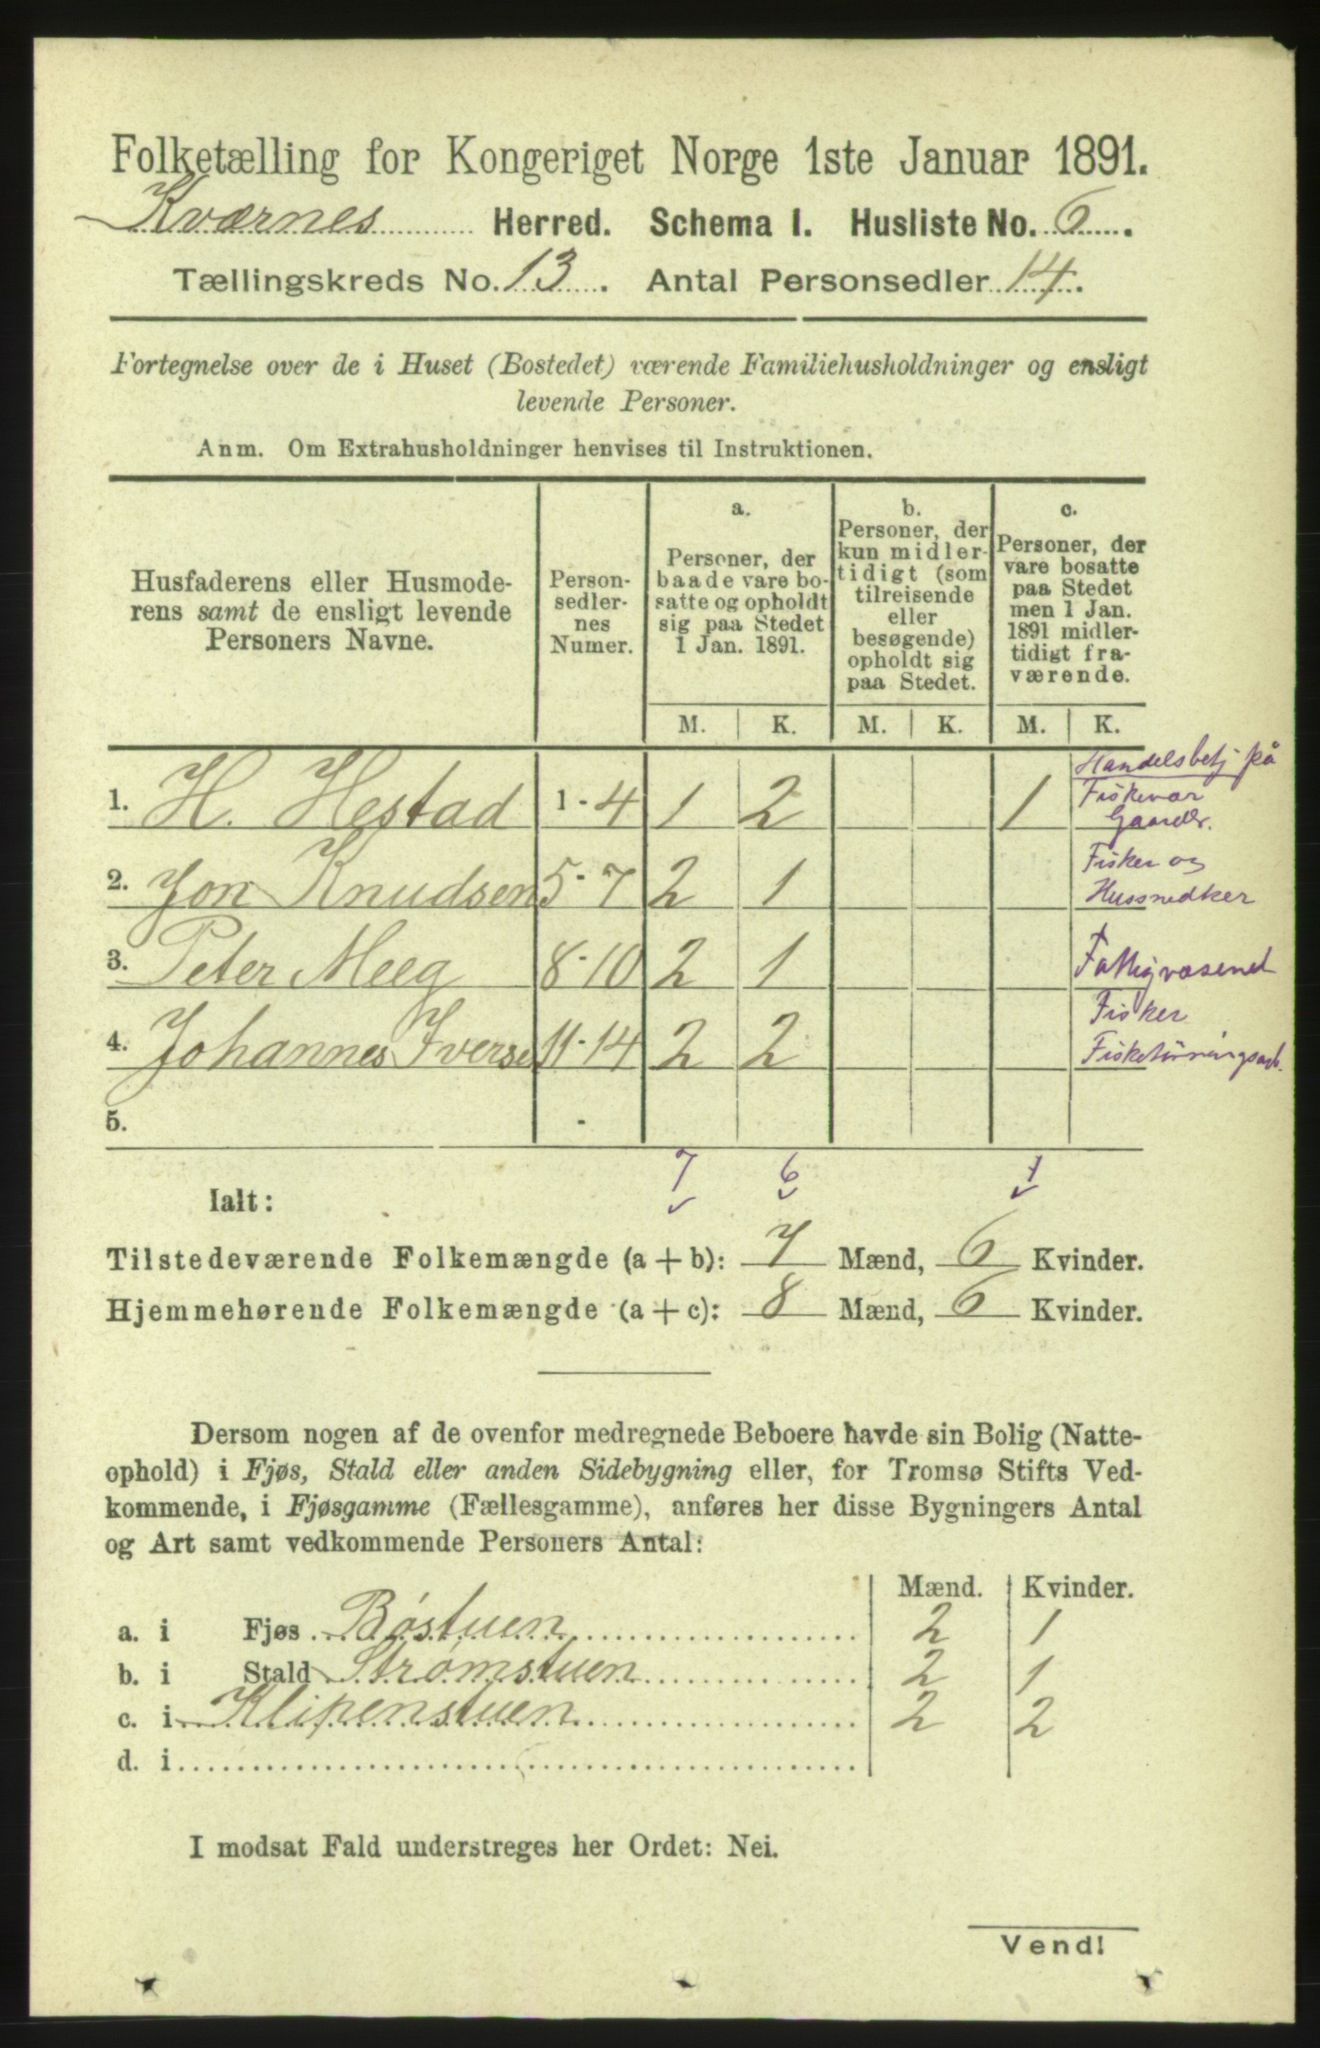 Folketælling for Kongeriget Norge 1ste Januar 1891.
Kværnes Herred. Schema I. Husliste No. 6.
Tællingskreds No. 13. Antal Personsedler 14.
Fortegnelse over de i Huset (Bostedet) værende Familiehusholdninger og ensligt
levende Personer.
Anm. Om Extrahusholdninger henvises til Instruktionen.
Husfaderens eller Husmode-
rens samt de ensligt levende
Personers Navne.
Person-
sedler-
nes
Numer.
a.
Personer, der
baade vare bo-
satte og opholdt
sig paa Stedet
1 Jan. 1891.
b.
Personer, der
kun midler-
tidigt (som
tilreisende
eller
besøgende)
opholdt sig
paa Stedet.
c.
Personer, der
vare bosatte
paa Stedet
men 1 Jan.
1891 midler-
tidigt fra-
værende.
M. K. M. K. M. K.
Handelsbetj på
1. H. Hestad 1-4 1 2 1 Fiskevær
Gaardbr.
2. Jon Knudsen 5-7 2 1 Fisker og
Hussnedker
3. Peter Meeg 8-10 2 1 Fattigvæsenet
Fisker
4. Johannes Iverse 11-14 2 2
5. -
7 6 1
Ialt:
Tilstedeværende Folkemængde (a + b): 7 Mænd, 6 Kvinder.
Hjemmehørende Folkemængde (a + c): 8 Mænd, 6 Kvinder.
Dersom nogen af de ovenfor medregnede Beboere havde sin Bolig (Natte-
ophold) i Fjøs, Stald eller anden Sidebygning eller, for Tromsø Stifts Ved-
kommende, i Fjøsgamme (Fællesgamme), anføres her disse Bygningers Antal
og Art samt vedkommende Personers Antal:
Mænd. Kvinder.
a. i Fjøs Bøstuen 2 1
b. i Stald Strømstuen 2 1
c. i Klipenstuen 2 2
d. i
I modsat Fald understreges her Ordet: Nei.
Vend!